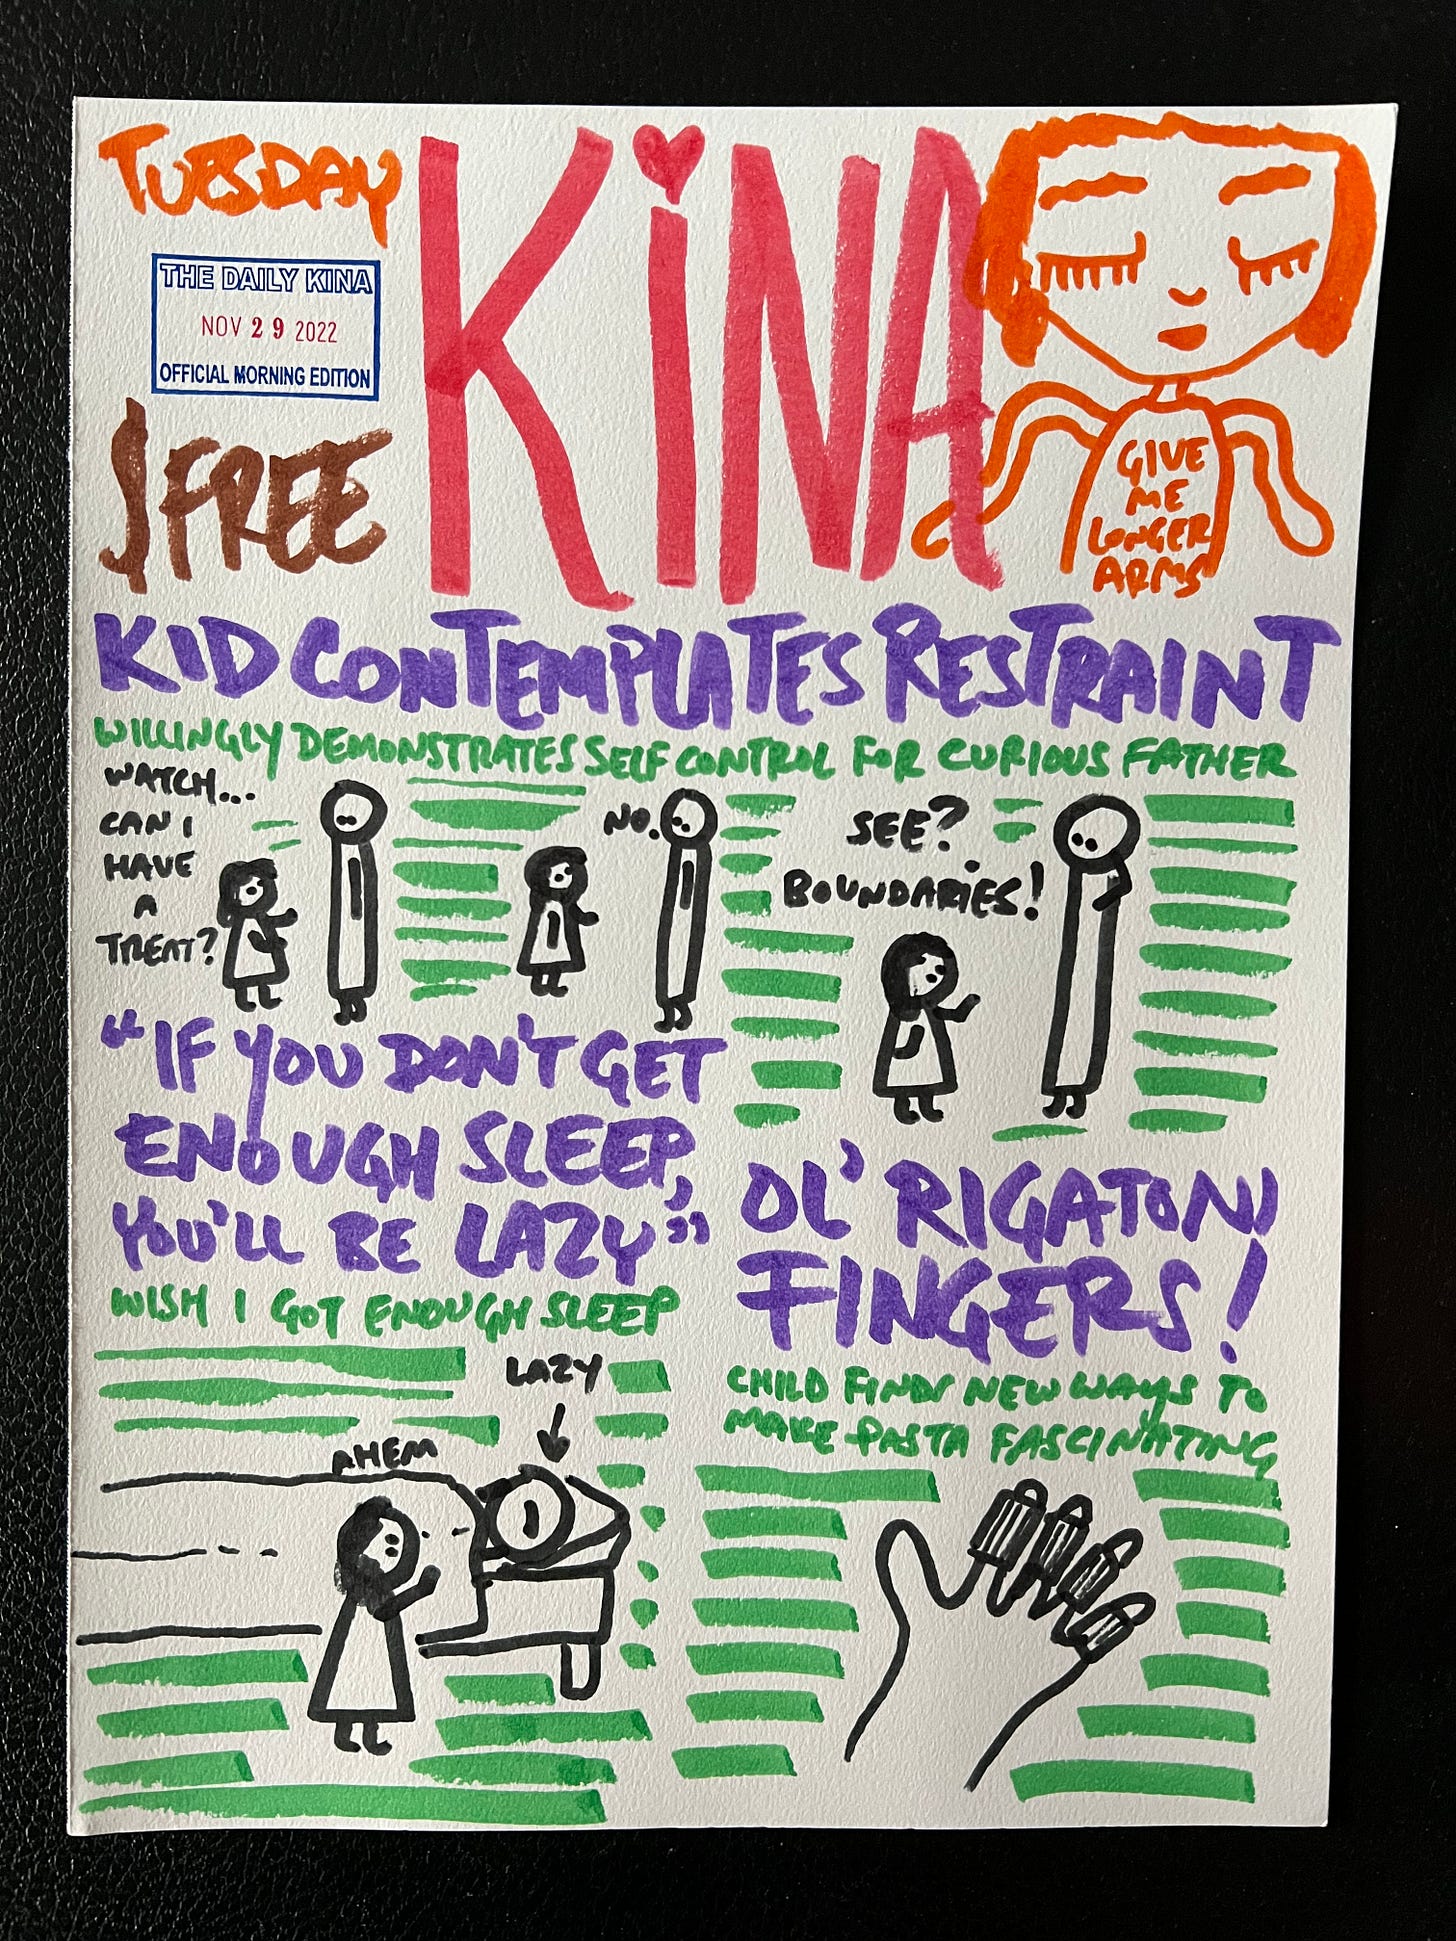 TUESDAY
THE DAILY KINA
NOV 29 2022
OFFICIAL MORNING EDITION
$FREE
KiNA
GIVE
ME
LONGER
ARMS
KID CONTEMPLATES RESTRAINT
WILLINGLY DEMONSTRATES SELF CONTROL FOR CURIOUS FATHER
WATCH...
CAN I
HAVE
A
TREAT?
NO.
SEE?
BOUNDARIES!
"IF YOU DON'T GET
ENOUGH SLEEP,
YOU'LL BE LAZY"
WISH I GOT ENOUGH SLEEP
LAZY
AHEM
OL' RIGATONI
FINGERS!
CHILD FINDS NEW WAYS TO
MAKE PASTA FASCINATING